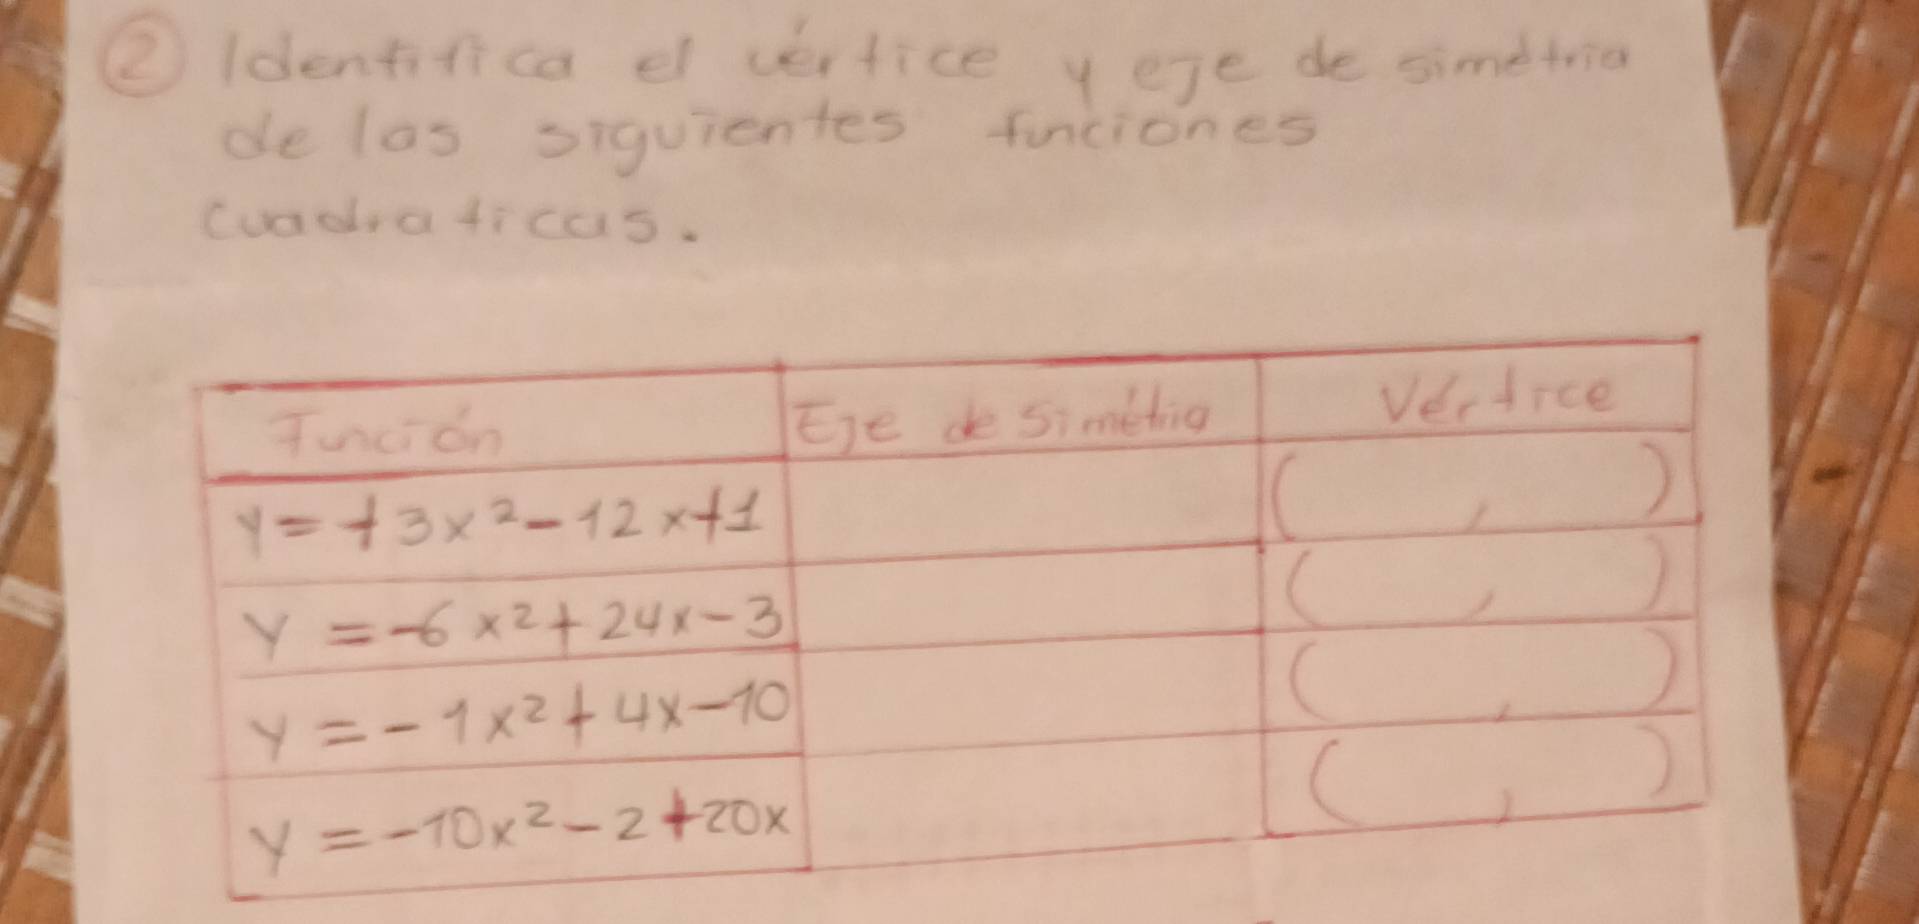 ② Identifica el vértice y eje de simétria
de las siguientes funciones
cuadraticas.
Función Eje de Simétria Vértice
y = +3x² - 12x + 1 ( , )
y = -6x² + 24x - 3 ( , )
y = -1x² + 4x - 10 ( , )
y = -10x² - 2 + 20x ( , )